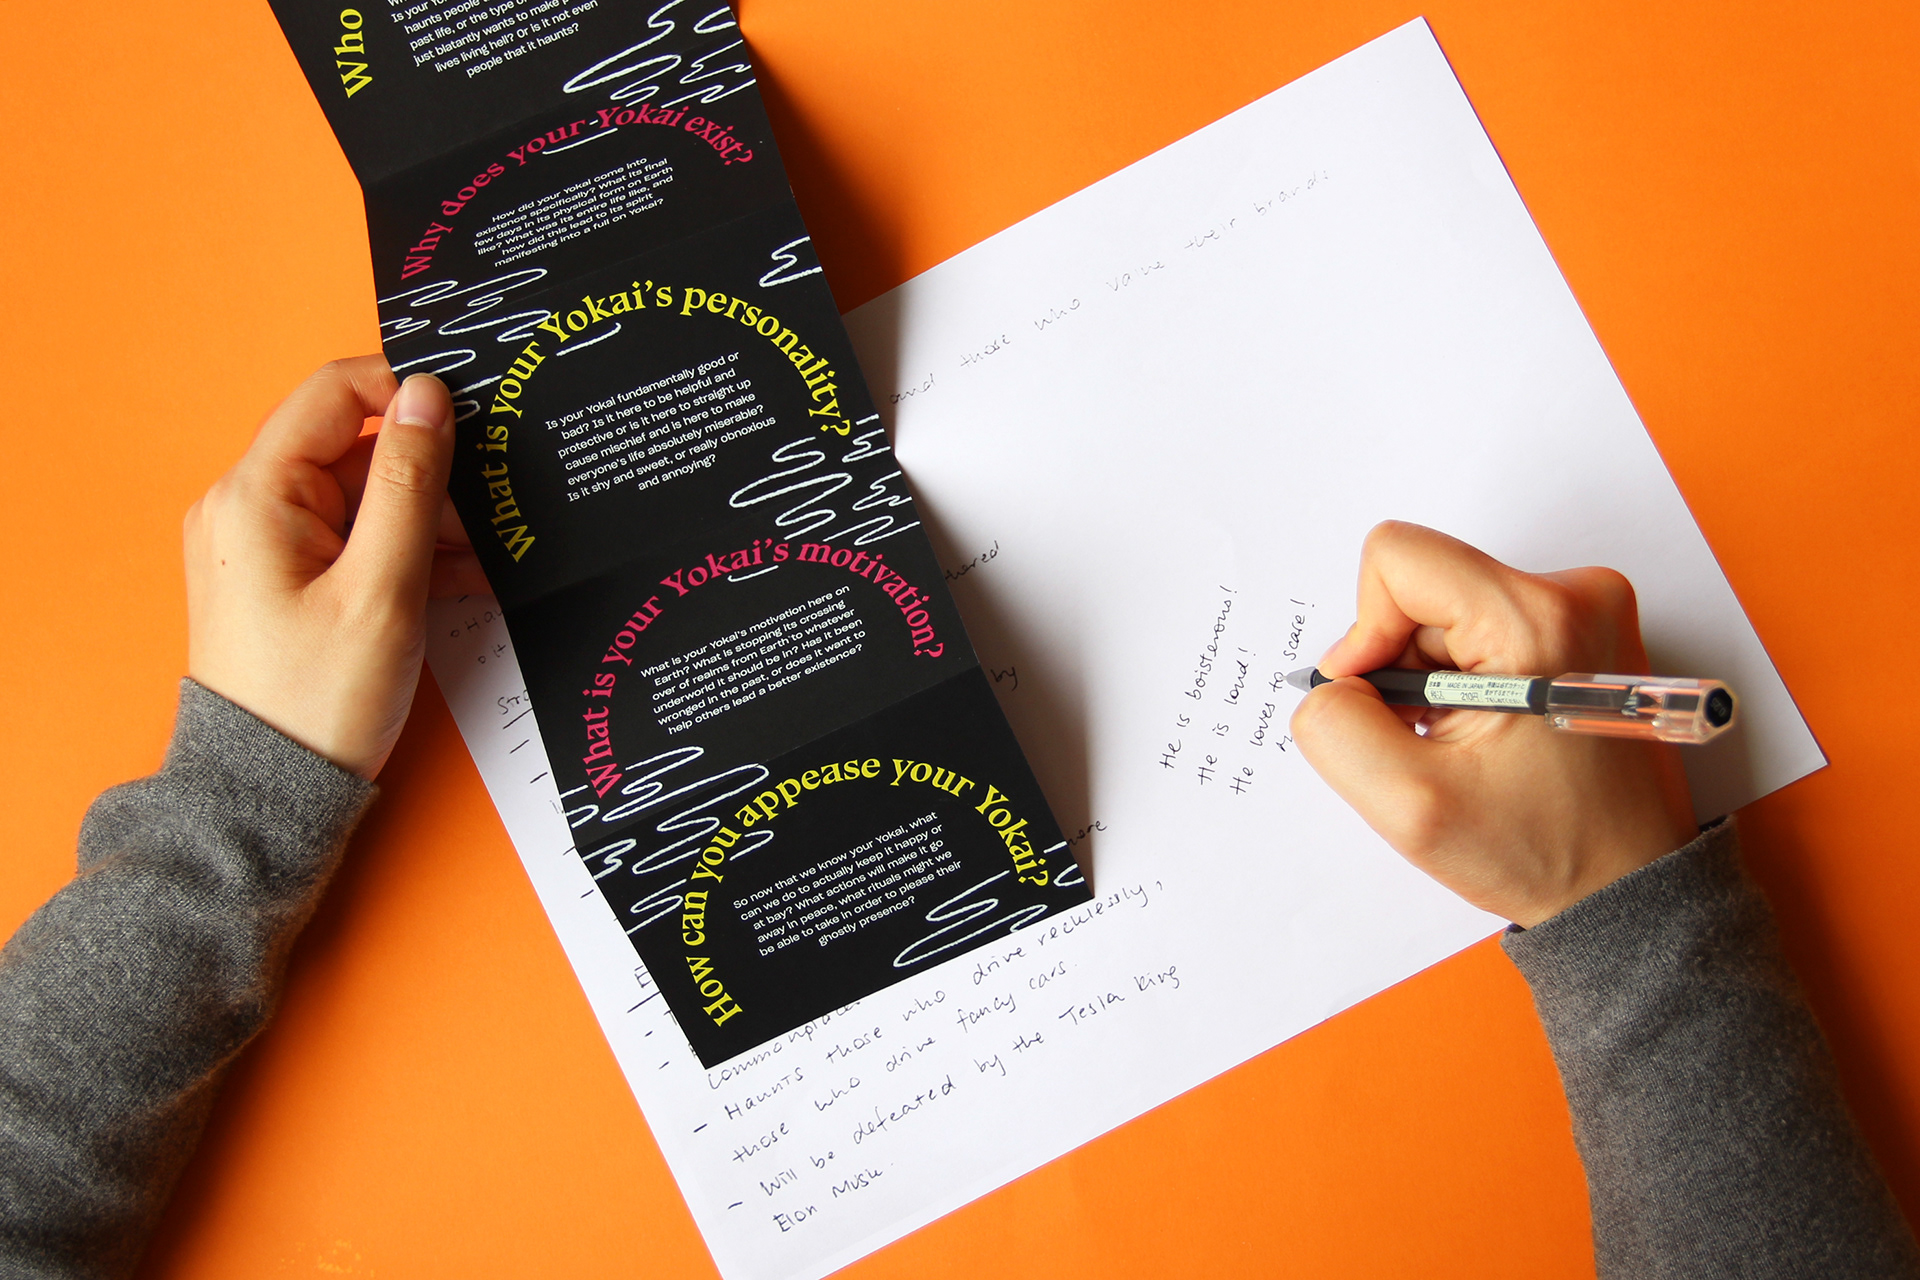 Who
Is your Yo
haunts people
past life, or the type o
just blatantly wants to make p
lives living hell? Or is it not even
people that it haunts?
Why does your Yokai exist?
How did your Yokai come into
existence specifically? What its final
few days in its physical form on Earth
like? What was its entire life like, and
how did this lead to its spirit
manifesting into a full on Yokai?
What is your Yokai's personality?
Is your Yokai fundamentally good or
bad? Is it here to be helpful and
protective or is it here to straight up
cause mischief and is here to make
everyone's life absolutely miserable?
Is it shy and sweet, or really obnoxious
and annoying?
What is your Yokai's motivation?
What is your Yokai's motivation here on
Earth? What is stopping its crossing
over of realms from Earth to whatever
underworld it should be in? Has it been
wronged in the past, or does it want to
help others lead a better existence?
How can you appease your Yokai?
So now that we know your Yokai, what
can we do to actually keep it happy or
at bay? What actions will make it go
away in peace, what rituals might we
be able to take in order to please their
ghostly presence?
and those who value their brands
by
He is boisterous!
He is loud!
He loves to scare!
MADE IN JAPAN
210円
- Haunts those who drive recklessly,
those who drive fancy cars.
- Will be defeated by the Tesla King
Elon Musk.